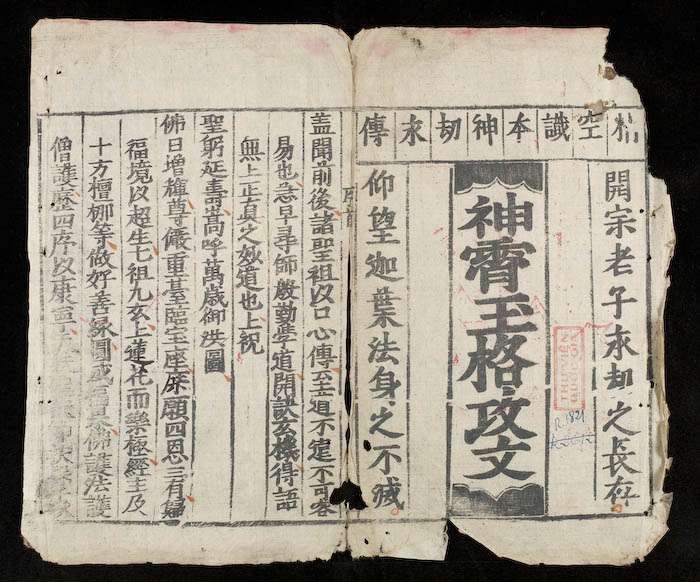 空識本神刼永傳
開宗老子永刼之長存
神霄玉格攻文
仰望迦葉法身之不滅
THƯ VIỆN
QUỐC GIA
R.1821
盖聞前後諸聖祖以口心傳至道不遠不可容
易也急早尋師慇勤學道開訣玄機得語
無上正真之妙道也上祝
聖躬延壽嵩呼萬歲御洪圖
佛日增輝尊儼重基臨宝座願四恩三有歸
福境以超生七祖九玄上蓮花而樂極經主及
十方檀那等做好善緣圓成果佛護法護
僧護歷四序以康寧